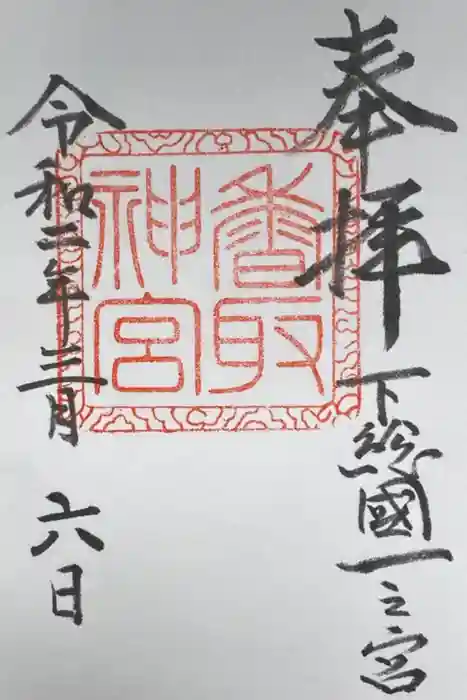 奉拝
下総國一之宮
香取
神宮
令和二年三月六日